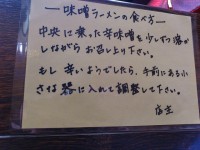 ー味噌ラーメンの食べ方ー
中央に乗った辛味噌を少しずつ溶か
しながらお召し上り下さい。
もし辛いようでしたら、手前にある小
さな器に入れて調整して下さい。
店主